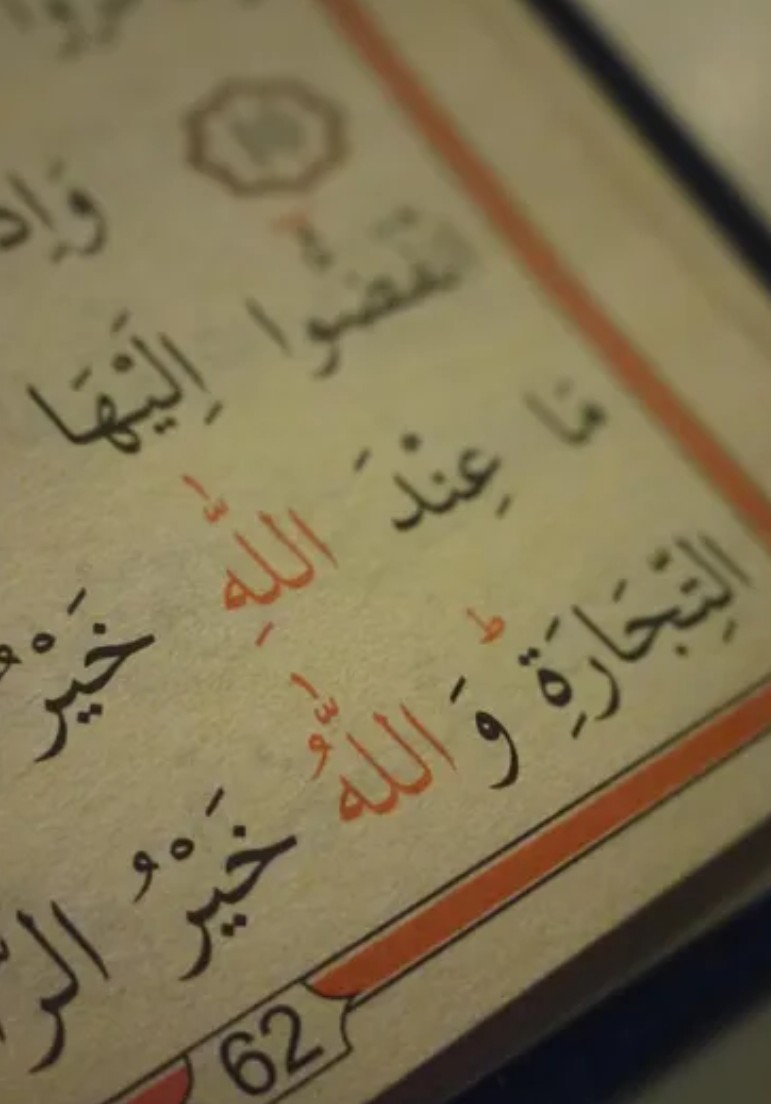 وَاِذ
نْفَضُّوا اِلَيْهَا
مَا عِنْدَ اللّٰهِ خَيْرٌ
التِّجَارَةِ ط وَاللّٰهُ خَيْرُ الر
62